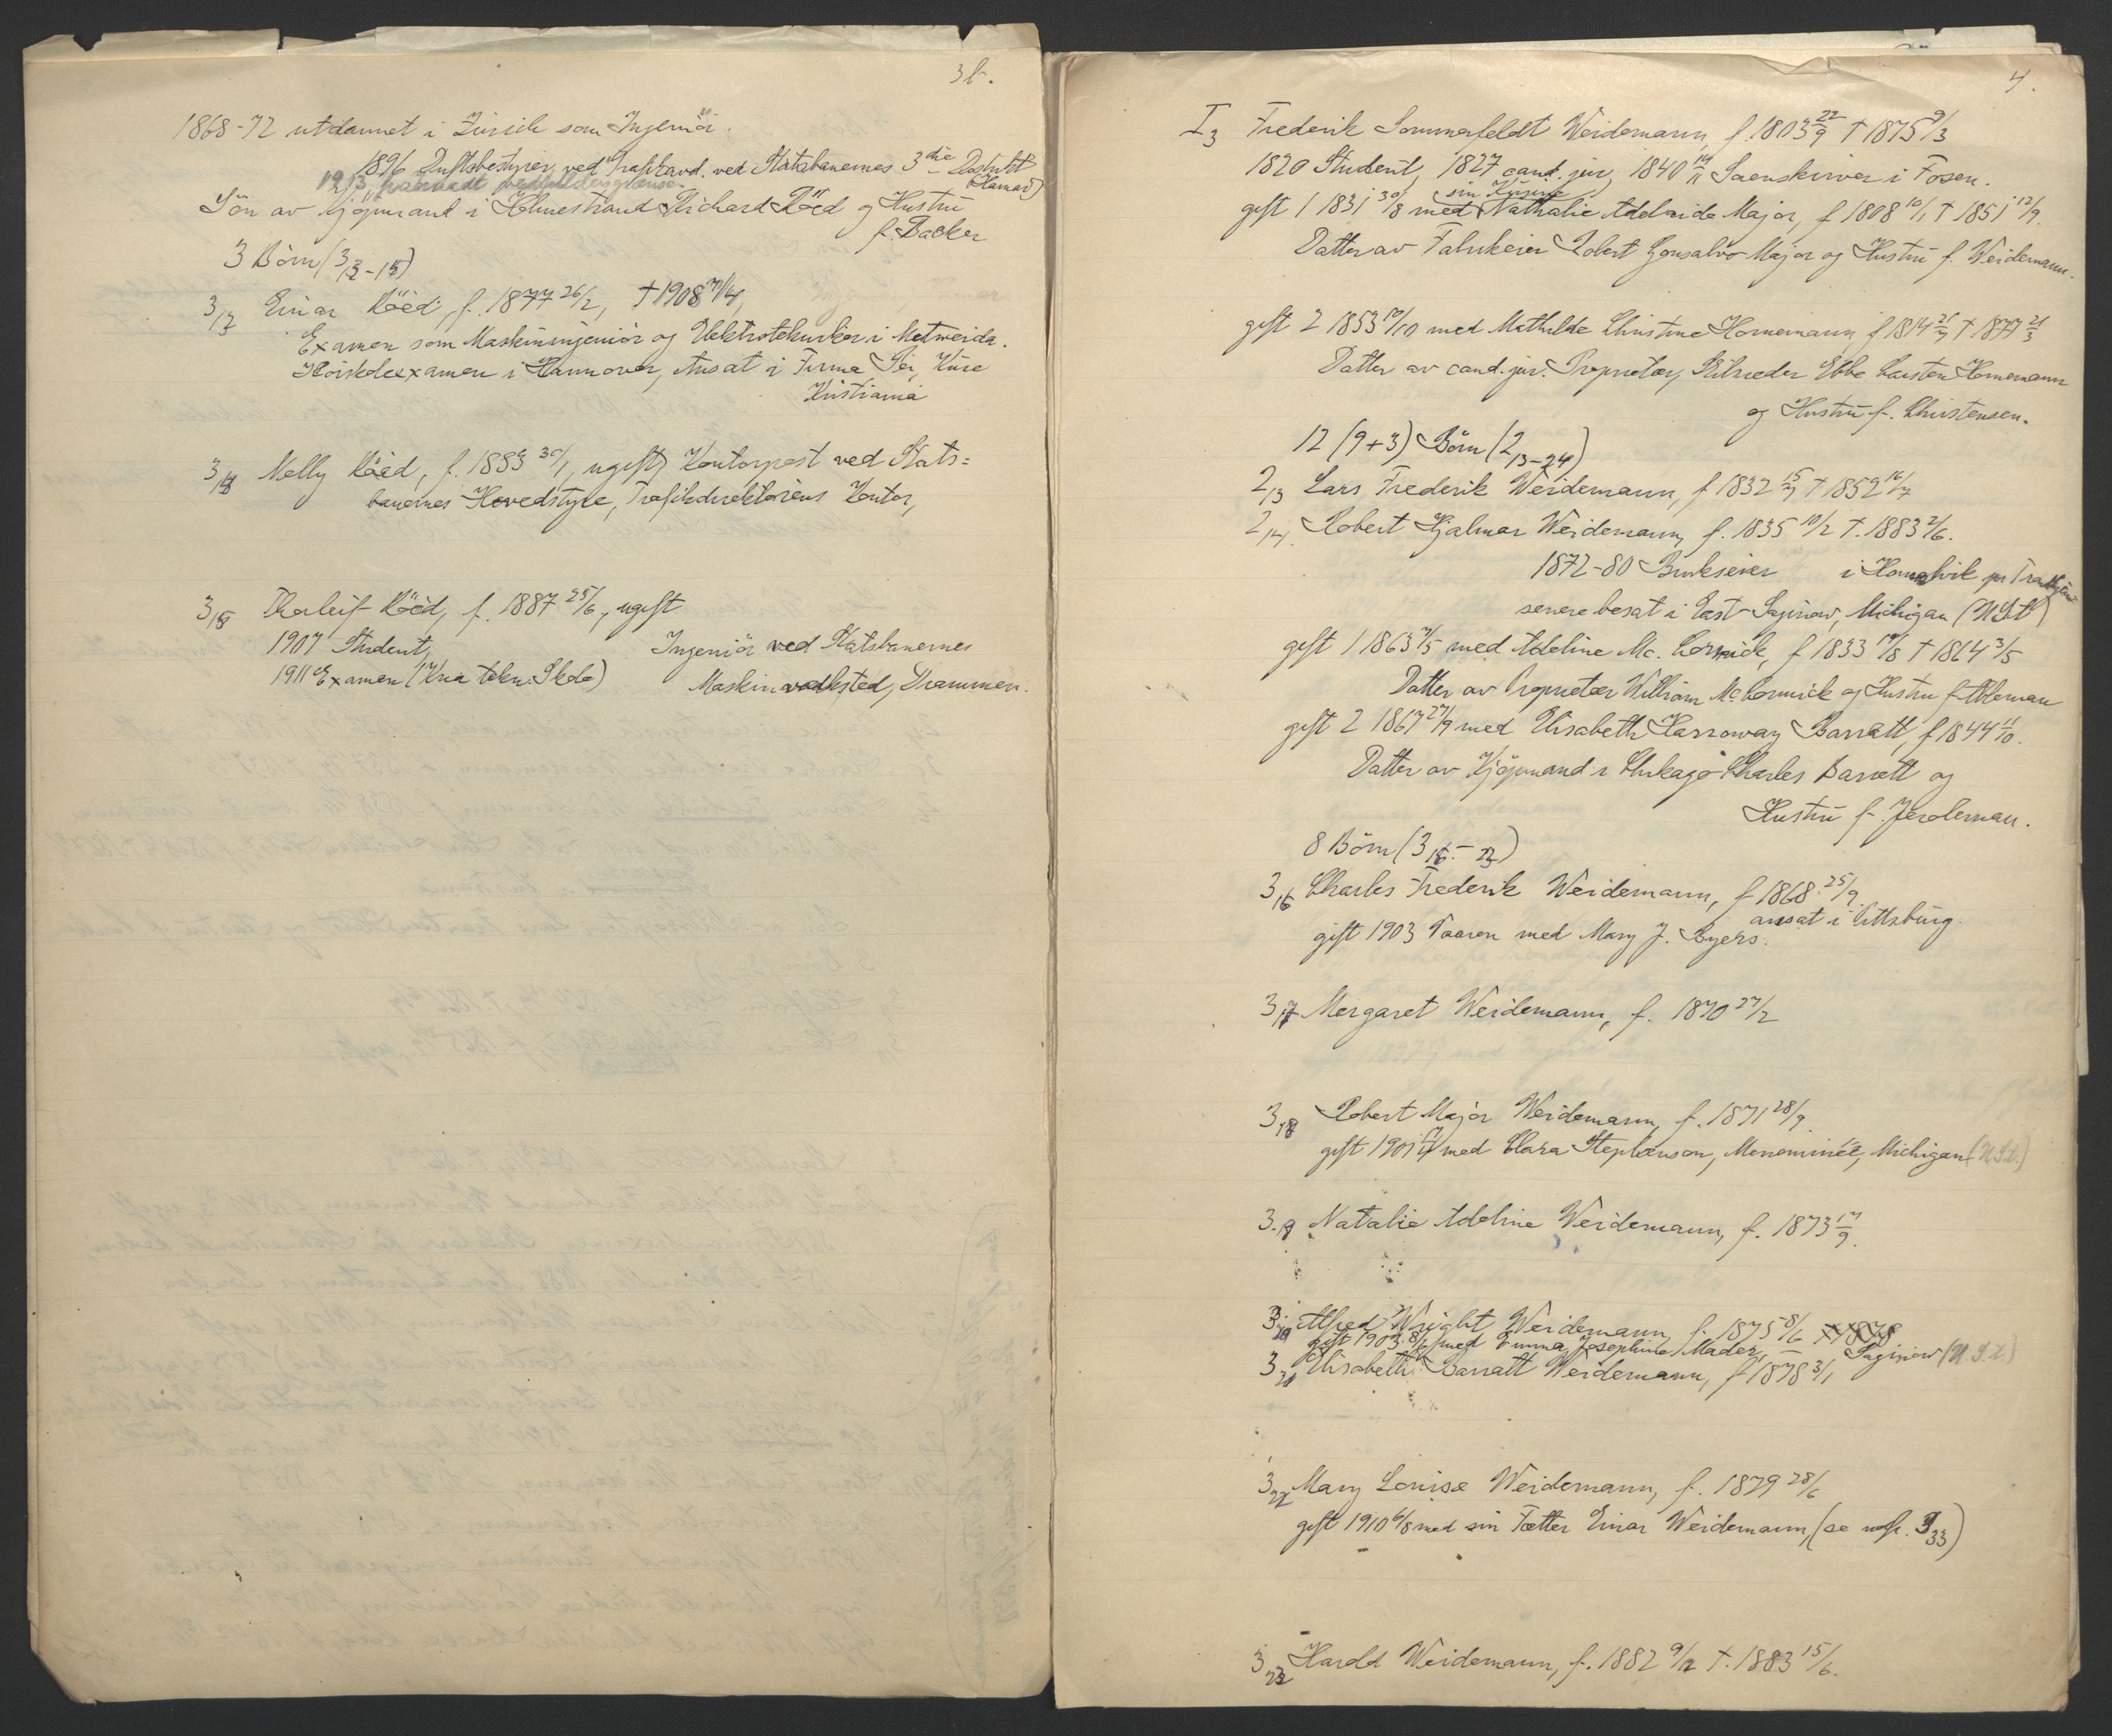 3b.
1868-72 utdannet i Zürich som Ingeniör.
1896 Driftsbestyrer ved Trafikavd. ved Statsbanernes 3die Distrikt
(Hamar)
Sön av Kjöpmand i Holmestrand Richard Röed og Hustru
f. Backer
3 Börn (3 13-15)
3 13 Einar Röed, f. 1877 26/2, † 1908
Examen som Maskiningeniör og Elektrotekniker i Metweida.
Höiskoleexamen i Hannover, Ansat i Firma
Kristiania
3 14 Nelly Röed, f. 1883 30/1, ugift, Kontorpost ved Stats=
banernes Hovedstyre, Trafikdirektörens Kontor,
3 15 Thorleif Röed, f. 1887 25/6, ugift
1907 Student, Ingeniör ved Statsbanernes
1911 Examen (Kria tekn. Skole) Maskinverksted, Drammen.
4.
I 3 Frederik Sommerfeldt Weidemann, f. 1803 22/9 † 1875 9/3
1820 Student, 1827 cand. jur, 1840 14/11 Sorenskriver i Fosen.
sin Kusine
gift 1 1831 30/8 med Nathalie Adelaide Major, f 1808 10/1 † 1851 12/9.
Datter av Fabrikeier Robert Gonsalvo Major og Hustru f. Weidemann.
gift 2 1853 19/10 med Mathilde Christine Hornemann f 1814 21/7 † 1877 21/3
Datter av cand. jur. Proprietær, Ebbe Carsten Hornemann
og Hustru f. Christensen.
12 (9+3) Börn (2 13-24)
2 13 Lars Frederik Weidemann, f 1832 15/7 † 1852 16/7
2 14. Robert Hjalmar Weidemann, f. 1835 10/2 †. 1883 2/6.
1872-80 Brukseier i Hommelvik pr Trondhjem
senere besat i East-Saginaw, Michigan (U.S.A)
gift 1 1863 7/5 med Adeline Mc. Cormick, f 1833 19/8 † 1864 3/5
Datter av Proprietær William McCormick og Hustru f. Alleman
gift 2 1867 27/9 med Elisabeth Harroway Barratt, f 1844 11/10.
Datter av Kjöpmand i Chikago Charles Barratt og
Hustru f. Jerdeman.
8 Börn (3 16. - 23)
3 16 Charles Frederik Weidemann, f 1868 25/9.
ansat i Pittsburg.
gift 1903 Vaaren med Mary J. Byers.
3 17 Mergaret Weidemann, f. 1870 27/2
3 18 Robert Major Weidemann, f. 1871 28/9.
gift 1901 med Clara Stephenson, Menominee, Michigan (U.S.A.)
3. 19 Natalie Adeline Weidemann, f. 1873 17/9.
3 20 Alfred Wright Weidemann, f. 1875 8/6 † 1878
gift 1903 8/6 med Emma Josephine Mader, — Saginaw (U.S.A.)
3 21 Elisabeth Barratt Weidemann, f 1878 3/1
3 22 Mary Louise Weidemann, f. 1879 28/6
gift 1910 6/8 med sin Fætter Einar Weidemann, (se 3 33)
3 23 Harold Weidemann, f. 1882 9/12 †. 1883 15/6.